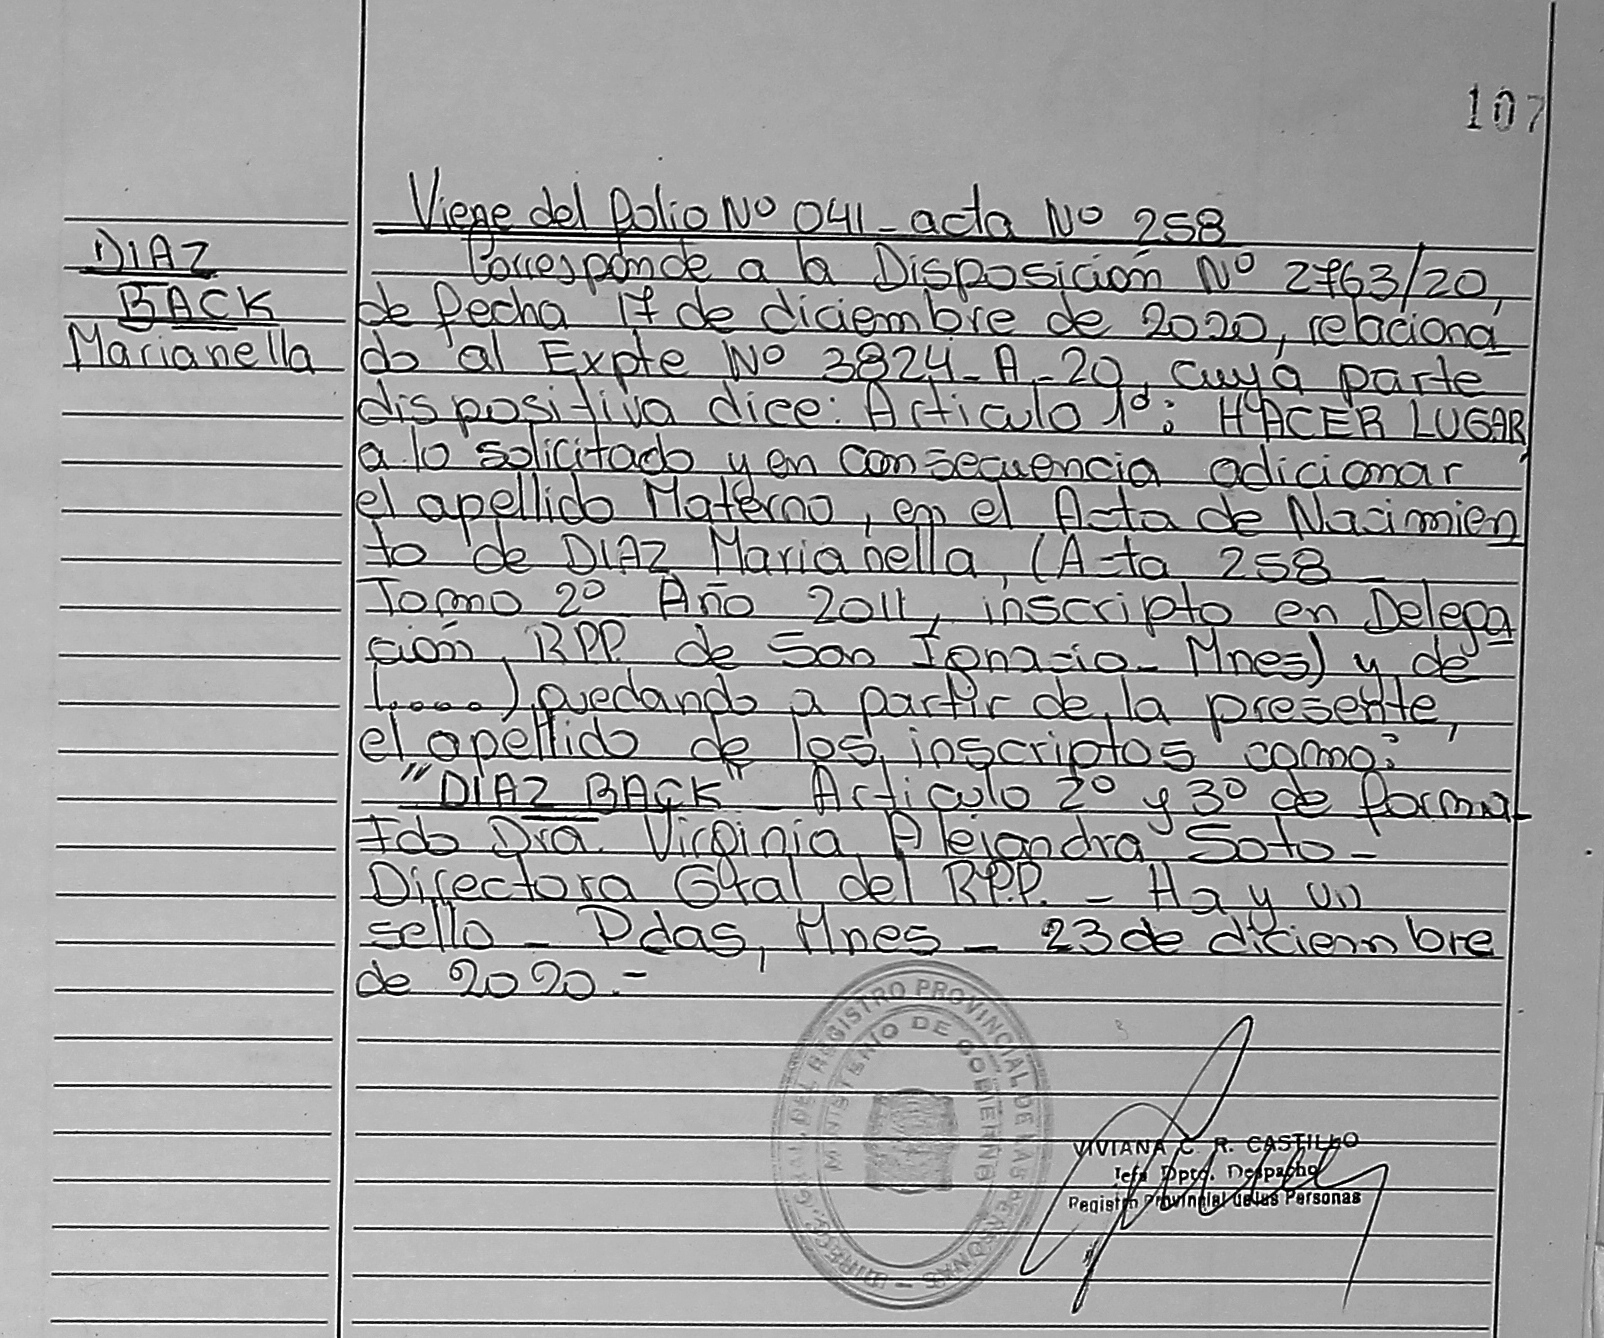 107
Viene del folio Nº 041 - acta Nº 258
DIAZ
BACK
Marianella
Corresponde a la Disposición Nº 2763/20,
de fecha 17 de diciembre de 2020, relaciona
do al Expte Nº 3824-A-20, cuya parte
dispositiva dice: Articulo 1º: HACER LUGAR
a lo solicitado y en consecuencia adicionar
el apellido Materno, en el Acta de Nacimien
to de DIAZ Marianella, (Acta 258
Tomo 2º Año 2011, inscripto en Delega
ción RPP. de San Ignacio - Mnes) y de
(.....) quedando a partir de la presente,
el apellido de los inscriptos como:
"DIAZ BACK" Articulo 2º y 3º de forma -
Fdo Dra. Virginia Alejandra Soto -
Directora Gral del R.P.P. - Hay un
sello - Pdas, Mnes - 23 de diciembre
de 2020.-
DIRECC. GRAL. DEL REGISTRO PROVINCIAL DE LAS PERSONAS -
MINISTERIO DE GOBIERNO
VIVIANA C. R. CASTILLO
Jefa Dpto. Despacho
Registro Provincial de las Personas